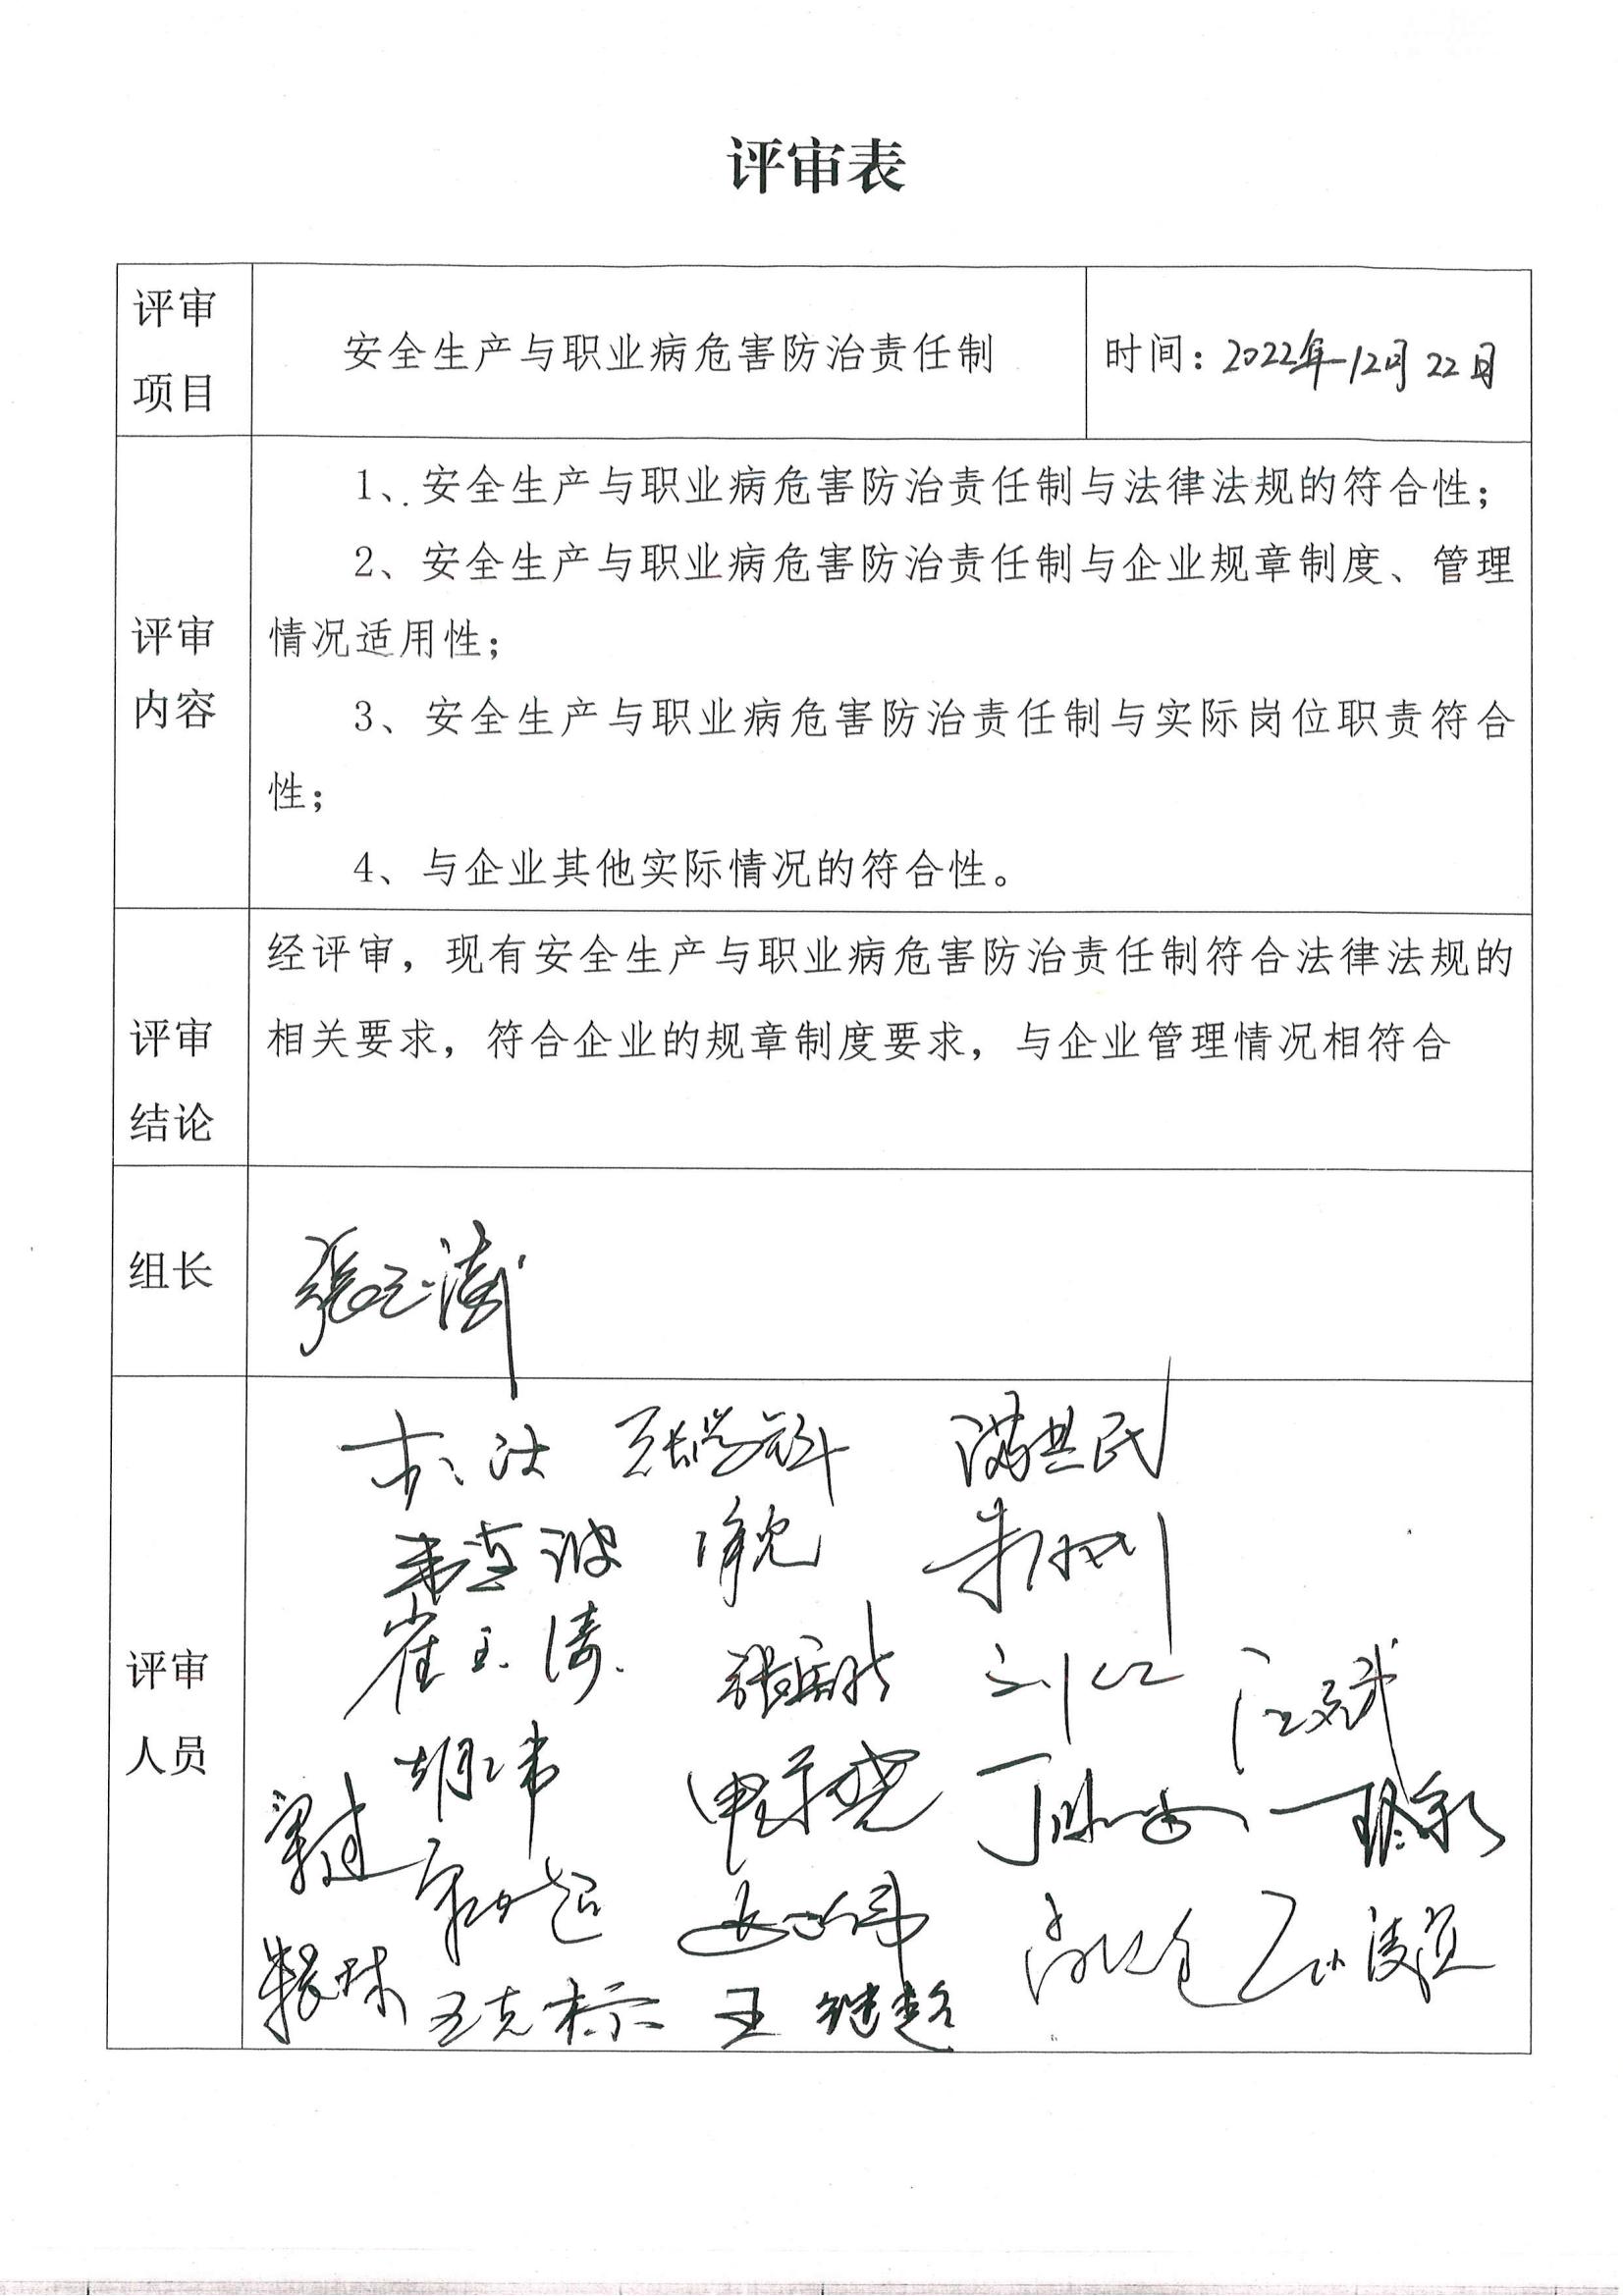 评审表
评审
项目
安全生产与职业病危害防治责任制
时间：2022年12月22日
评审
内容
1、安全生产与职业病危害防治责任制与法律法规的符合性；
2、安全生产与职业病危害防治责任制与企业规章制度、管理
情况适用性；
3、安全生产与职业病危害防治责任制与实际岗位职责符合
性；
4、与企业其他实际情况的符合性。
评审
结论
经评审，现有安全生产与职业病危害防治责任制符合法律法规的
相关要求，符合企业的规章制度要求，与企业管理情况相符合
组长
评审
人员
满其民
崔玉涛
胡玮
王克标
王继超